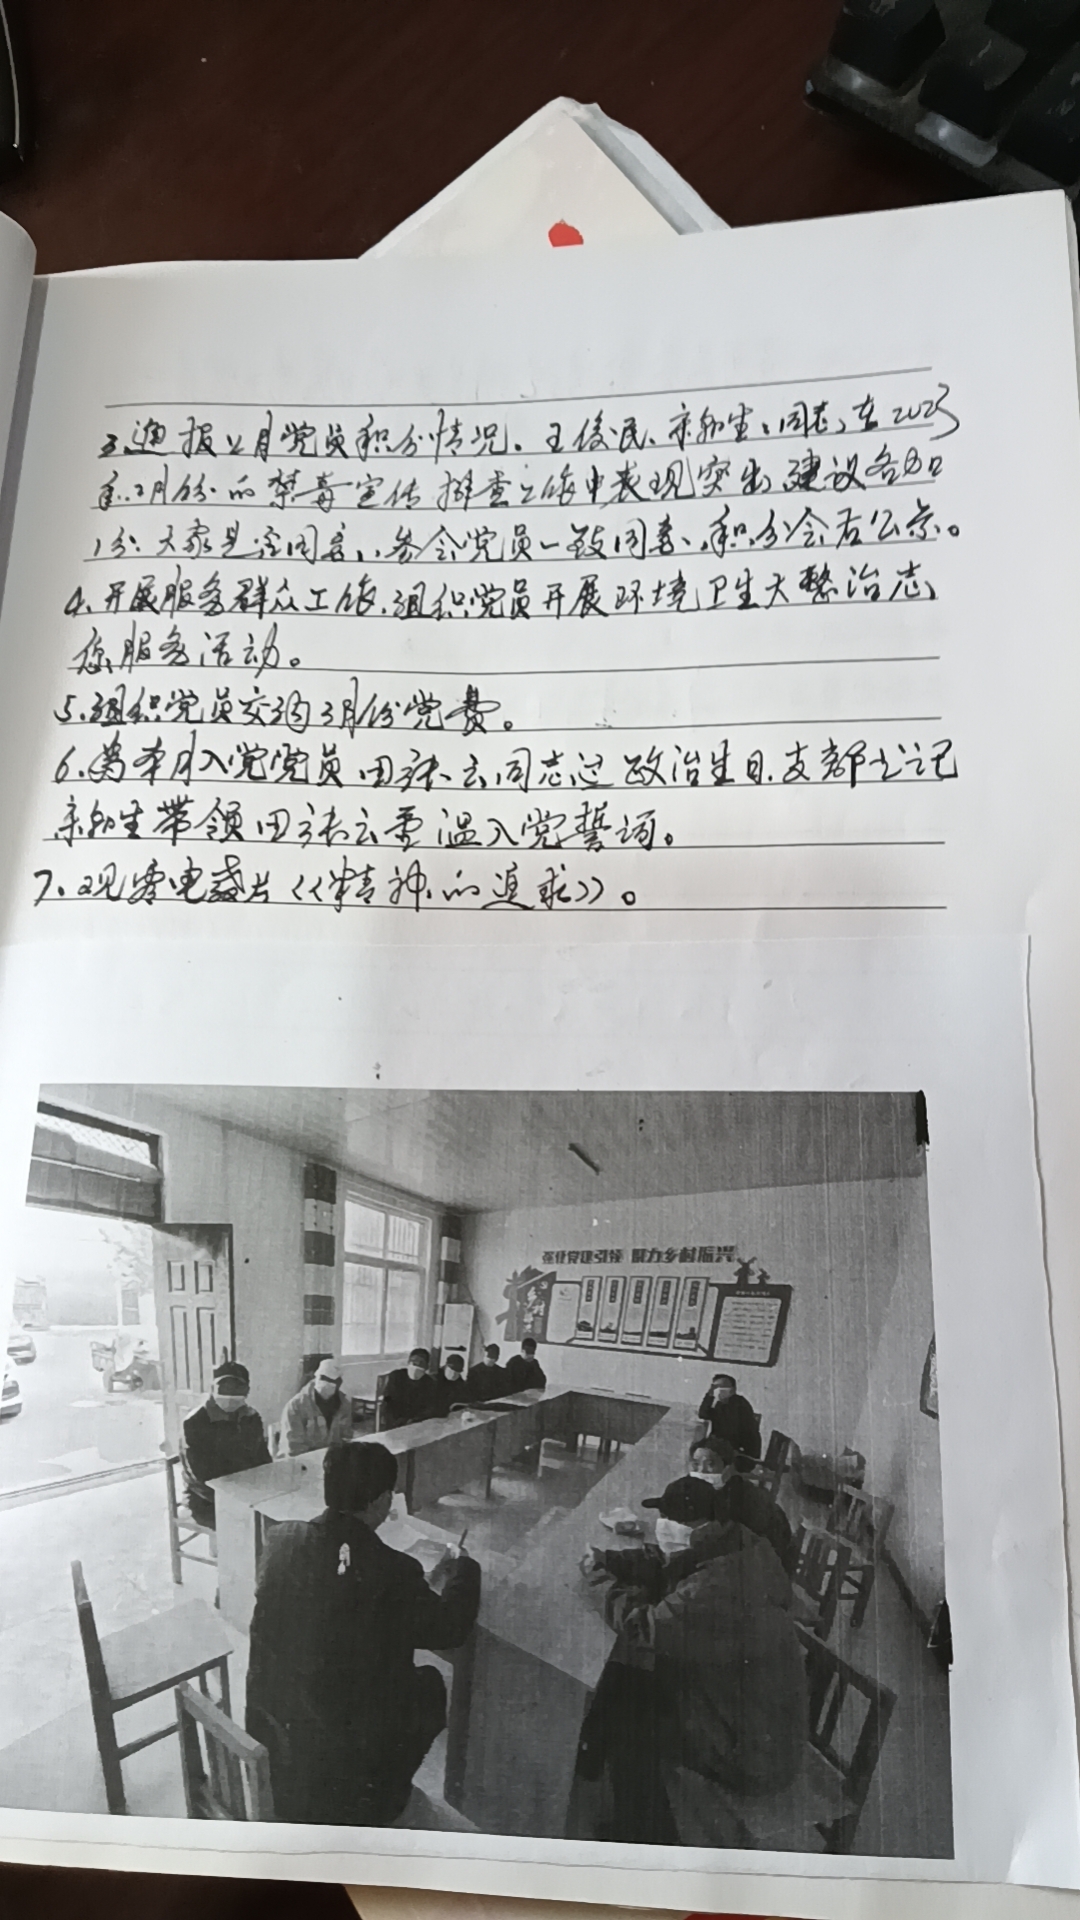 3.通报2月党员积分情况。王俊民、宋和生、同志,在2023
年2月份的禁毒宣传排查工作中表现突出,建议各加
1分。大家是否同意,参会党员一致同意、积分会后公示。
4.开展服务群众工作。组织党员开展环境卫生大整治志
愿服务活动。
5.组织党员交纳3月份党费。
6.为本月入党党员田张云同志过政治生日,支部书记
宋和生带领田张云重温入党誓词。
7.观看电教片《精神的追求》。
强化党建引领 助力乡村振兴